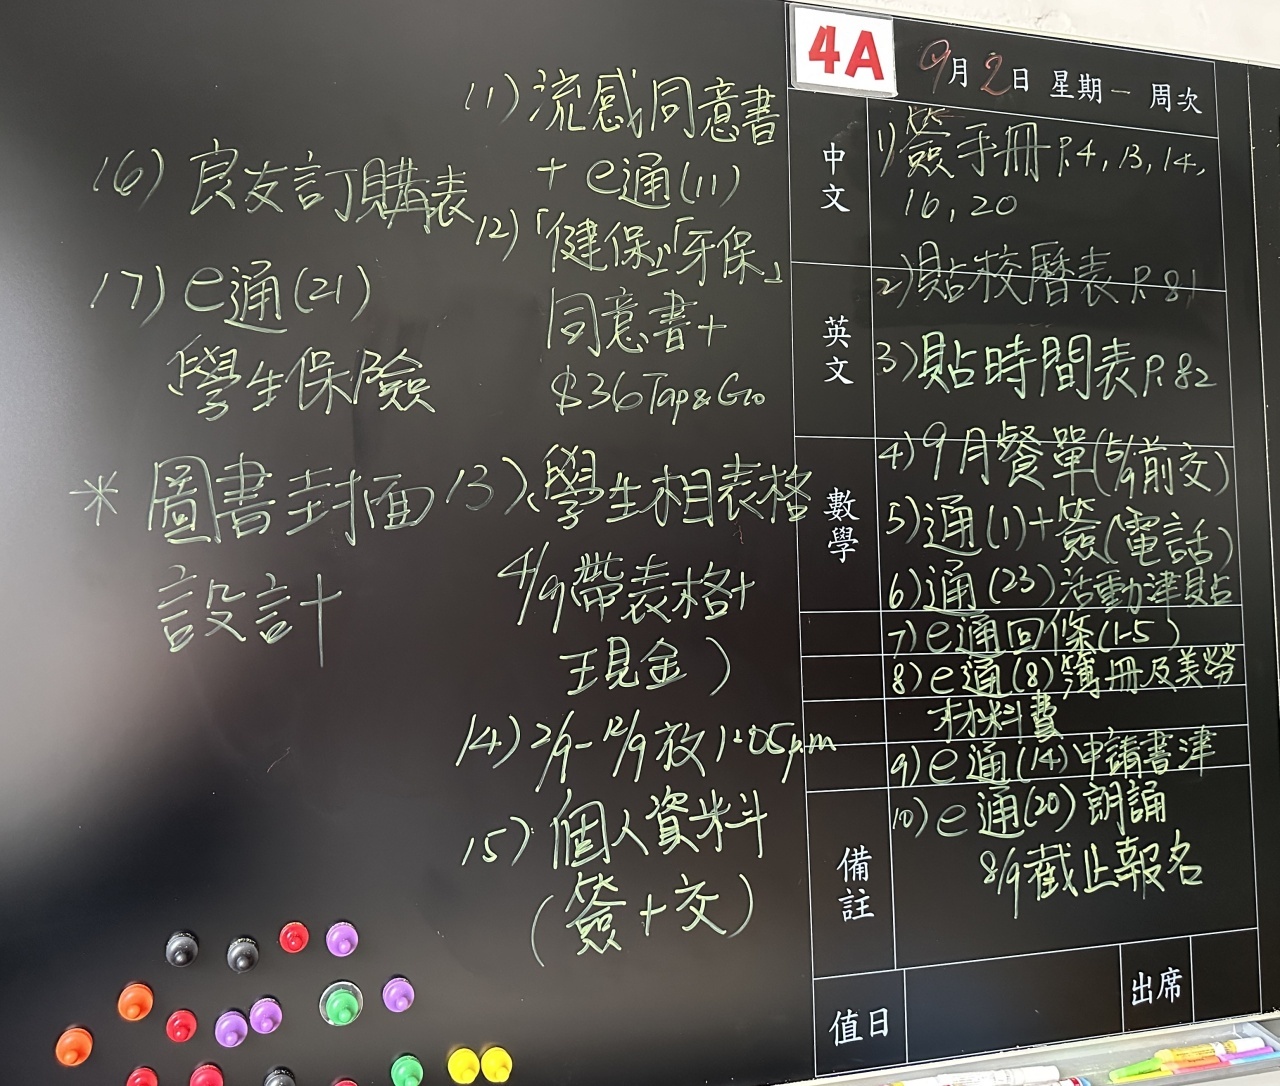 4A
9月2日 星期一 周次
中文
英文
數學
備註
值日
出席
1)簽手冊 P.4, 13, 14,
16, 20
2)貼校曆表 P. 81
3)貼時間表 P. 82
4) 9月餐單(5/9前交)
5)通(1)+簽(電話)
6)通(23)活動津貼
7) e通回條(1-5)
8) e通(8)簿冊及美勞
材料費
9) e通(14)申請書津
10) e通(20)朗誦
8/9截止報名
11)流感同意書
+ e通(11)
12)「健保」「牙保」
同意書+
$36 Tap & Go
13)學生相表格
4/9帶表格+
現金)
14) 2/9-12/9放1:05p.m
15)個人資料
(簽+交)
16)良友訂購表
17) e通(21)
學生保險
* 圖書封面
設計